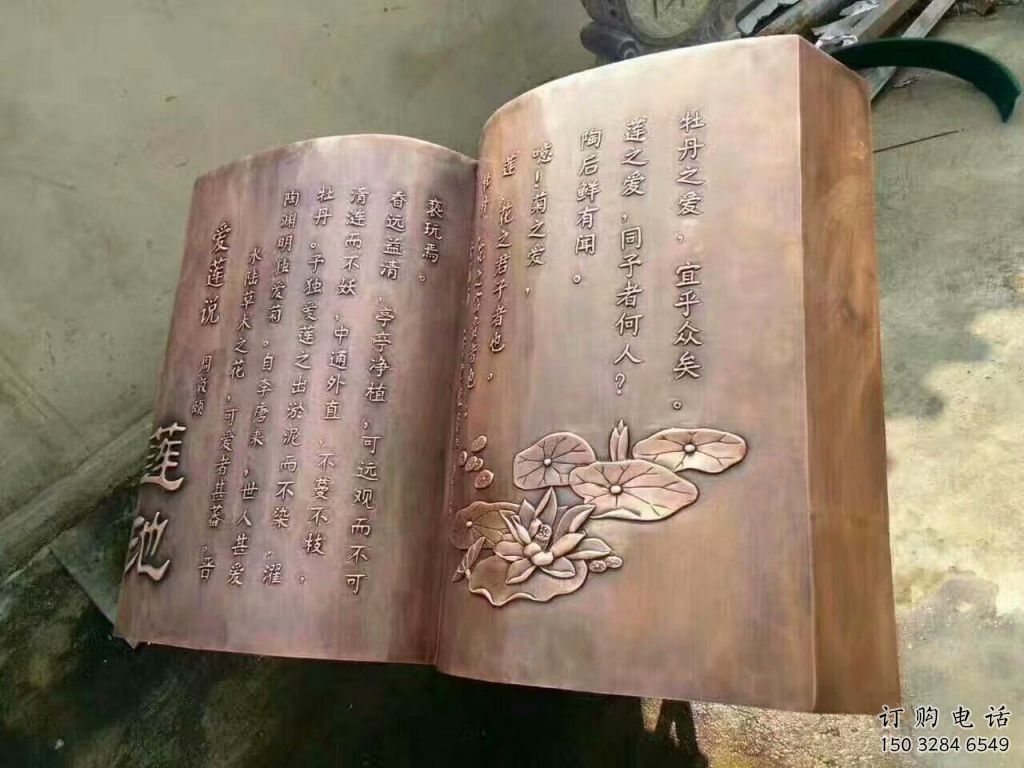 莲池
爱莲说 周敦颐
水陆草木之花,可爱者甚蕃。晋
陶渊明独爱菊。自李唐来,世人甚爱
牡丹。予独爱莲之出淤泥而不染,濯
清涟而不妖,中通外直,不蔓不枝,
香远益清,亭亭净植,可远观而不可
亵玩焉。
莲,花之君子者也,
噫!菊之爱,
陶后鲜有闻。
莲之爱,同予者何人?
牡丹之爱,宜乎众矣。
订购电话
150 3284 6549